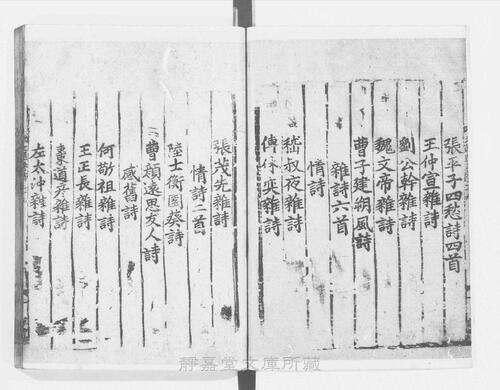 張平子四愁詩四首
王仲宣雜詩
劉公幹雜詩
魏文帝雜詩
曹子建朔風詩
雜詩六首
情詩
嵇叔夜雜詩
傅休奕雜詩
張茂先雜詩
情詩二首
陸士衡園葵詩
曹顏遠思友人詩
感舊詩
何敬祖雜詩
王正長雜詩
棗道彥雜詩
左太沖雜詩
靜嘉堂文庫所藏